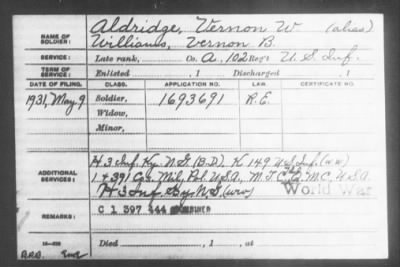 Aldridge, Vernon W. (alias)
NAME OF SOLDIER: Williams, Vernon B.
SERVICE: Late rank, Co. A, 102 Reg't U.S. Inf.
TERM OF SERVICE: Enlisted , 1 Discharged , 1
DATE OF FILING. CLASS. APPLICATION NO. LAW. CERTIFICATE NO.
1931, May 9 Soldier, 1693691 R.E.
Widow,
Minor,
H 3 Inf. Ky. N.G. (B.D.) K 149 U.S. Inf. (ww)
ADDITIONAL SERVICES: 1 & 391 Cos. Mil. Pol. U.S.A., M.T.C. Q.M.C. U.S.A.
H 3 Inf. Ky. N.G. (ww) World War
REMARKS: C 1 397 444 COMBINED
Died , 1 , at